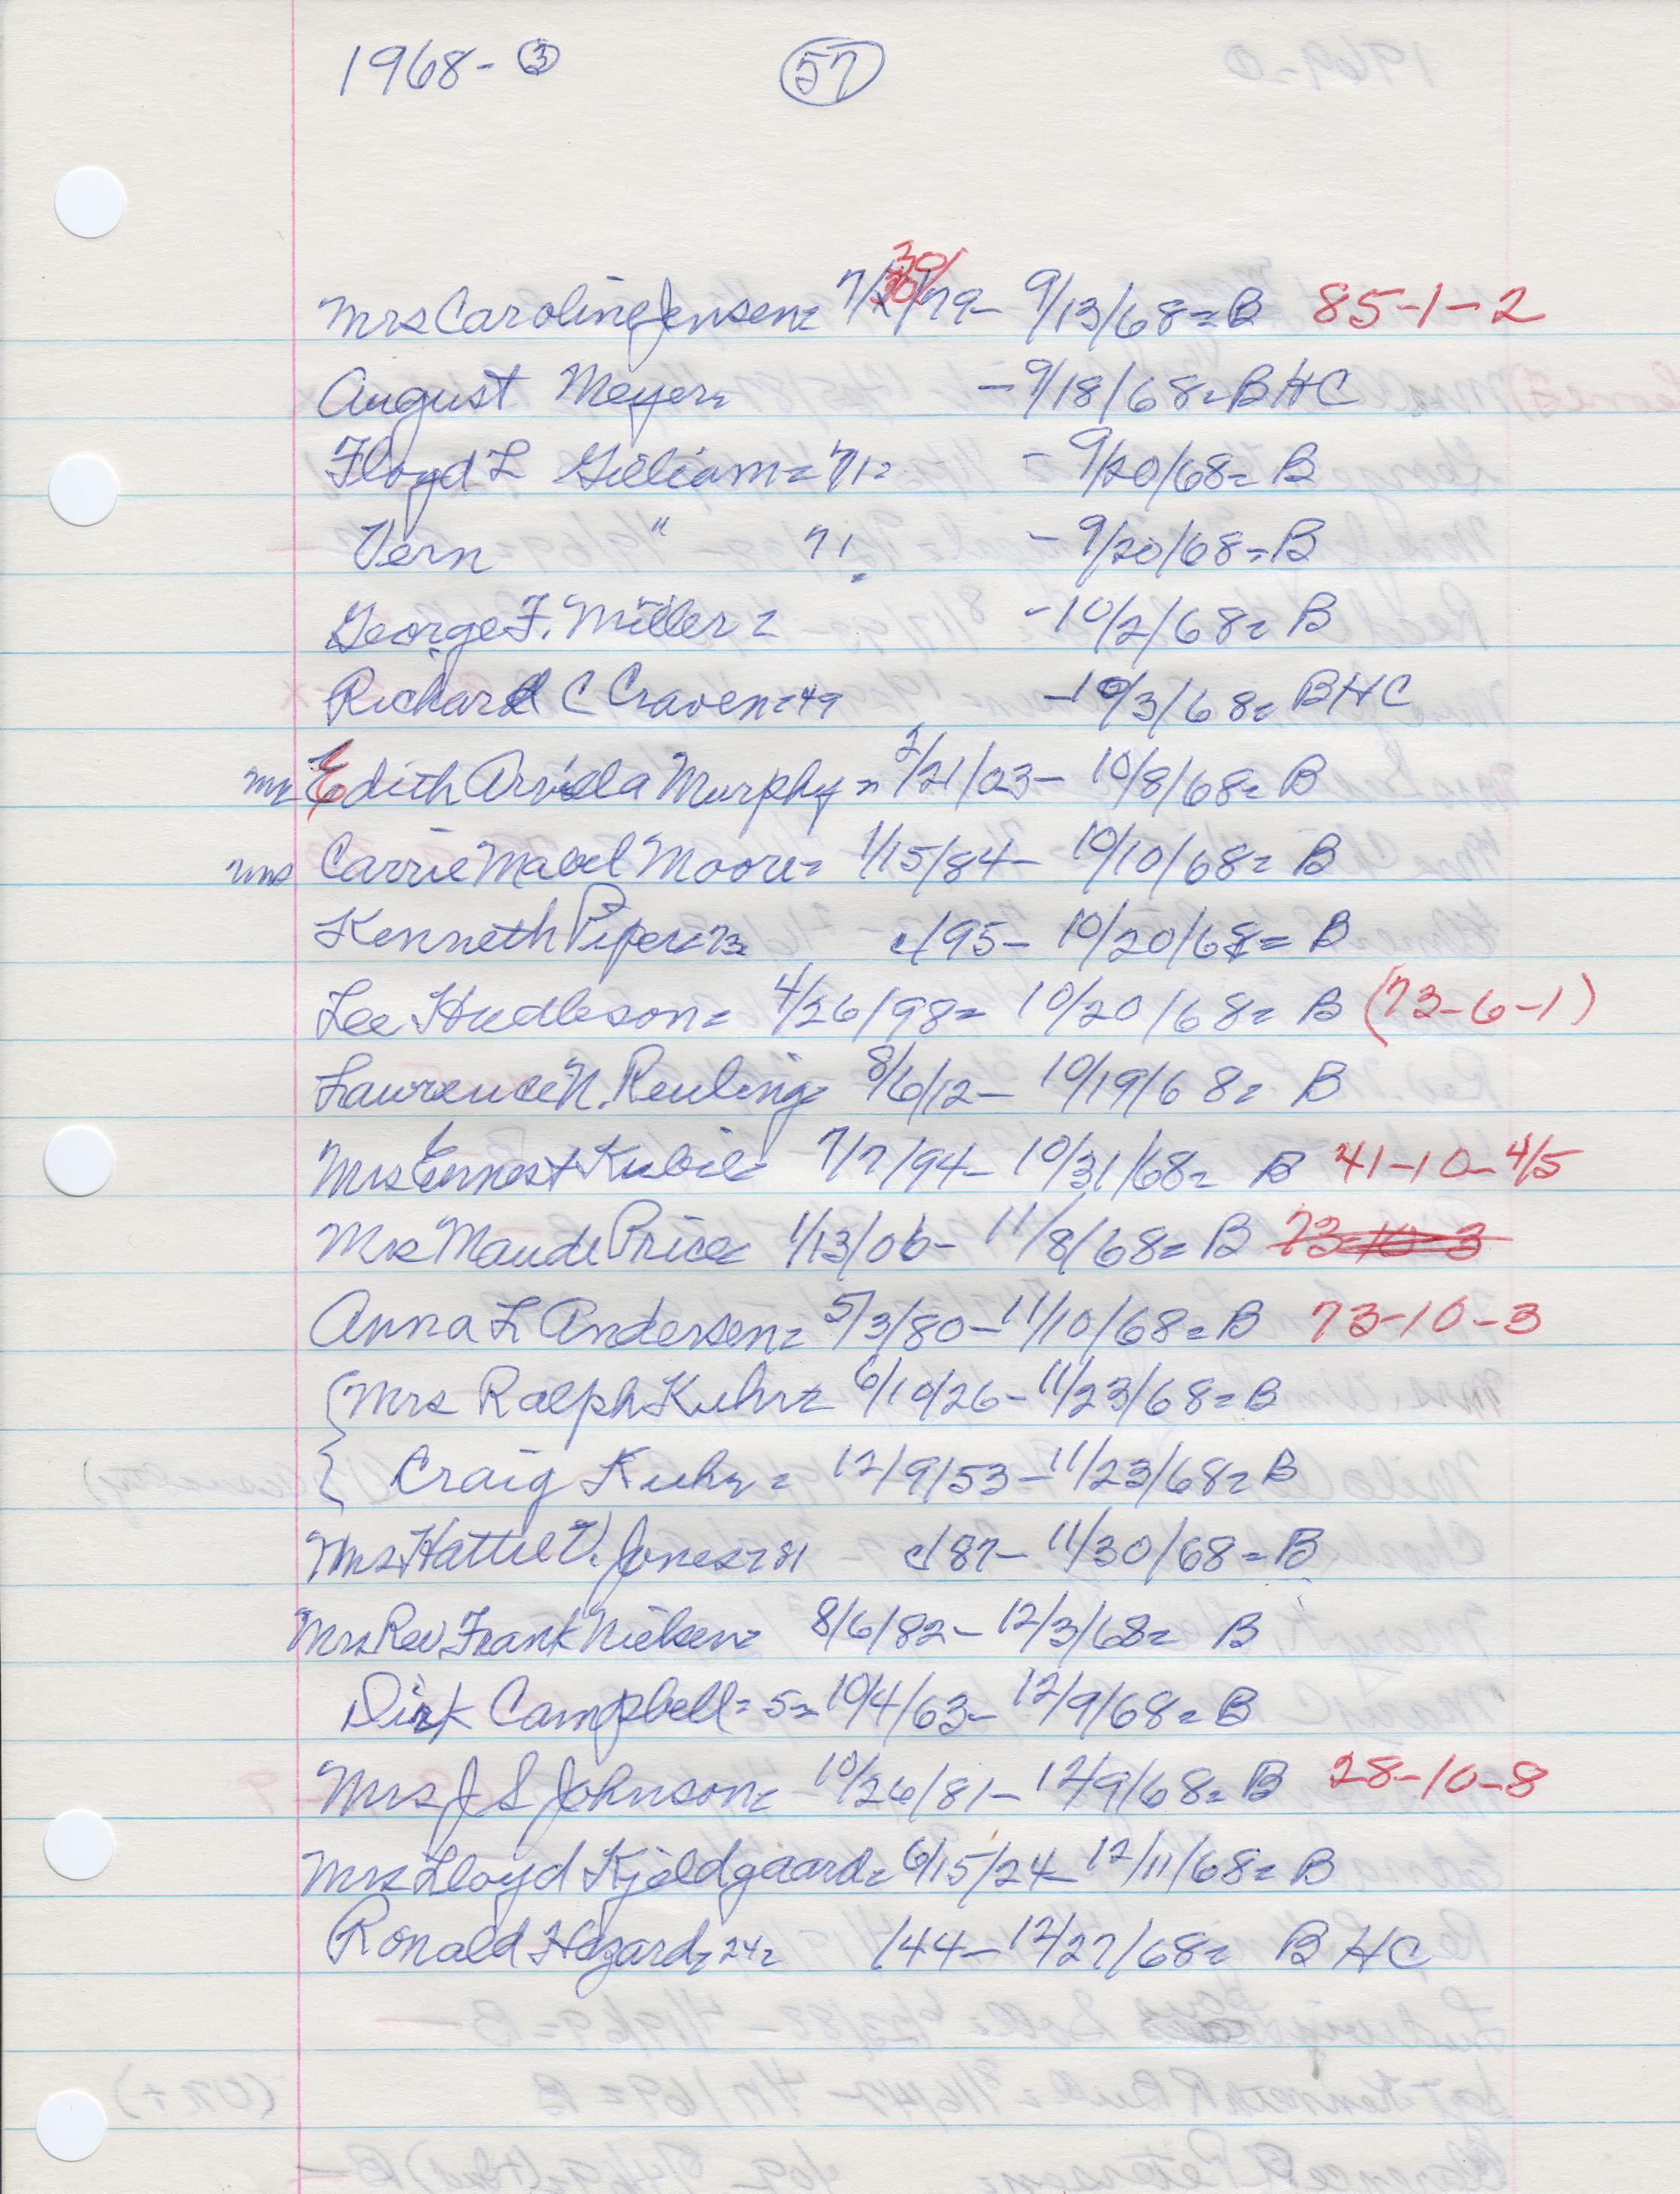 1968- ③ 57
Mrs Caroline Jensen= 7/30/79- 9/13/68= B 85-1-2
August Meyer= -9/18/68= BHC
Floyd L Gilliam= 71= -9/20/68= B
Vern " 71= -9/20/68= B
George F. Miller= -10/2/68= B
Richard C Craven=49 -10/3/68= BHC
Mrs Edith Arvilla Murphy= 2/21/03- 10/8/68= B
Mrs Carrie Mabel Moore= 1/15/84- 10/10/68= B
Kenneth Piper=73= c/95- 10/20/68= B
Lee Hudleson= 4/26/98= 10/20/68= B (73-6-1)
Lawrence N. Reuling= 8/6/12- 10/19/68= B
Mrs Ernest Kubic= 7/7/94- 10/31/68= B 41-10-4/5
Mrs Maude Price= 1/13/06- 11/8/68= B 73-10-3
Anna L Andersen= 5/3/80-11/10/68= B 73-10-3
{Mrs Ralph Kuhr= 6/10/26-11/23/68= B
{ Craig Kuhr= 12/9/53-11/23/68= B
Mrs Hattie V. Jones=81 c/87- 11/30/68= B
Mrs Rev Frank Nielsen= 8/6/82- 12/3/68= B
Dirk Campbell=5= 10/4/63- 12/9/68= B
Mrs J S Johnson= 10/26/81- 12/9/68= B 28-10-8
Mrs Lloyd Kjeldgaard= 6/15/24- 12/11/68= B
Ronald Hazard=24= /44- 12/27/68= B HC